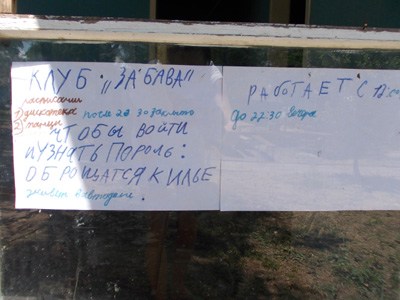 КЛУБ "ЗАБАВА"
расписании
1) дискотека после 20 30
2) танцы
ЧТОБЫ ВОЙТИ
И УЗНАТЬ ПОРОЛЬ:
ОБРОЩАТСЯ К ИЛЬЕ
РАБОТАЕТ С
до 22:30 вечера